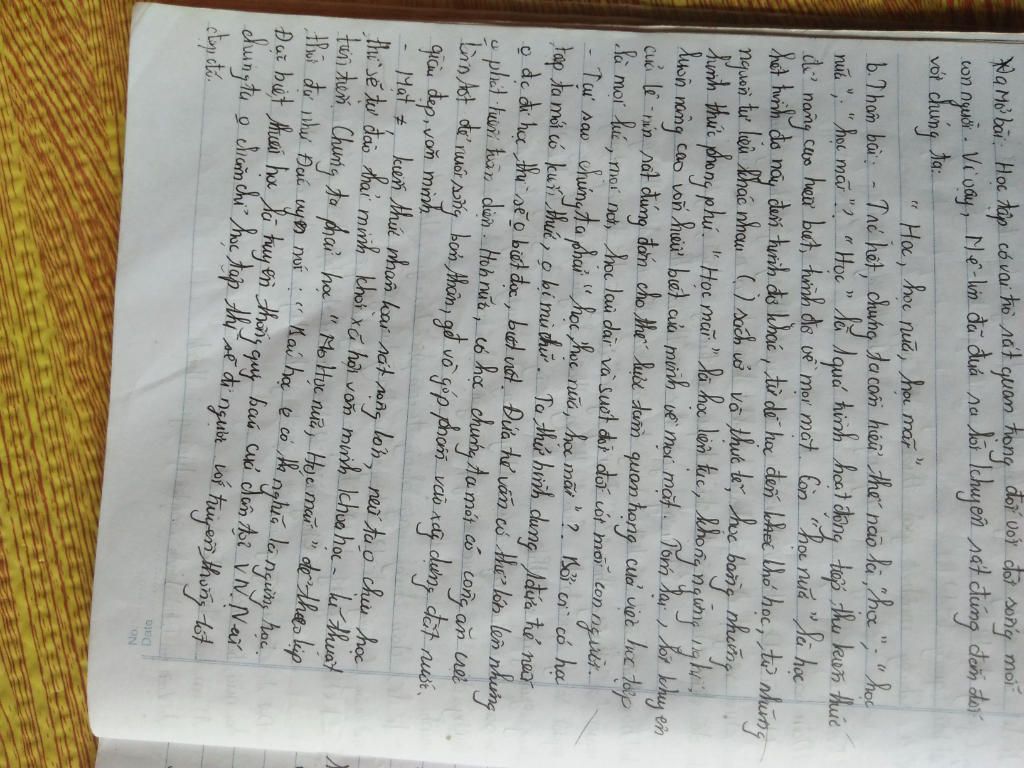 a. Mở bài: Học tập có vai trò rất quan trọng đối với đời sống mỗi
con người. Vì vậy, Lê-Nin đã đưa ra lời khuyên rất đúng đắn đối
với chúng ta:
"Học, học nữa, học mãi"
b. Thân bài: - Trước hết, chúng ta cần hiểu thế nào là "học", "học
nữa", "học mãi", "Học" là quá trình hoạt động tiếp thu kiến thức
để nâng cao hiểu biết, trình độ về mọi mặt. Còn "học nữa" là học
hết trình độ này đến trình độ khác, từ để học đến khoa học, từ những
nguồn tư liệu khác nhau ( ) sách vở và thực tế, học bằng những
hình thức phong phú. "Học mãi" là học liên tục, không ngừng nghỉ,
luôn nâng cao vốn hiểu biết của mình về mọi mặt. Tóm lại, lời khuyên
của Lê-nin rất đúng đắn cho thấy tầm quan trọng của việc học tập
là mọi lúc, mọi nơi, học lâu dài và suốt đời đối với mỗi con người.
- Tại sao chúng ta phải "học, học nữa, học mãi"? Bởi vì có học
tập ta mới có kiến thức, o bị mù chữ. Ta thử hình dung 1 đứa trẻ nào
o đc đi học, thì sẽ o biết đọc, biết viết. Đứa trẻ vẫn có thể lớn lên nhưng
o phát triển toàn diện. Hơn nữa, có học chúng ta mới có công ăn việc
làm tốt để nuôi sống bản thân, gđ và góp phần vào xây dựng đất nước
giàu đẹp, văn minh.
- Mặt ≠, kiến thức nhân loại rất rộng lớn, nếu ta o chịu học
thì sẽ tự đào thải mình khỏi xã hội văn minh khoa học - kĩ thuật
tiên tiến. Chúng ta phải học "Học nữa, Học mãi" để theo kịp
thời đại như Đác uyn nói: "Bác học o có nghĩa là ngừng học"
Đặc biệt, hiếu học là truyền thống quý báu của dân tộc V.N. Nếu
chúng ta o chăm chỉ học tập thì sẽ đi ngược với truyền thống tốt
đẹp đó.
Date
No.